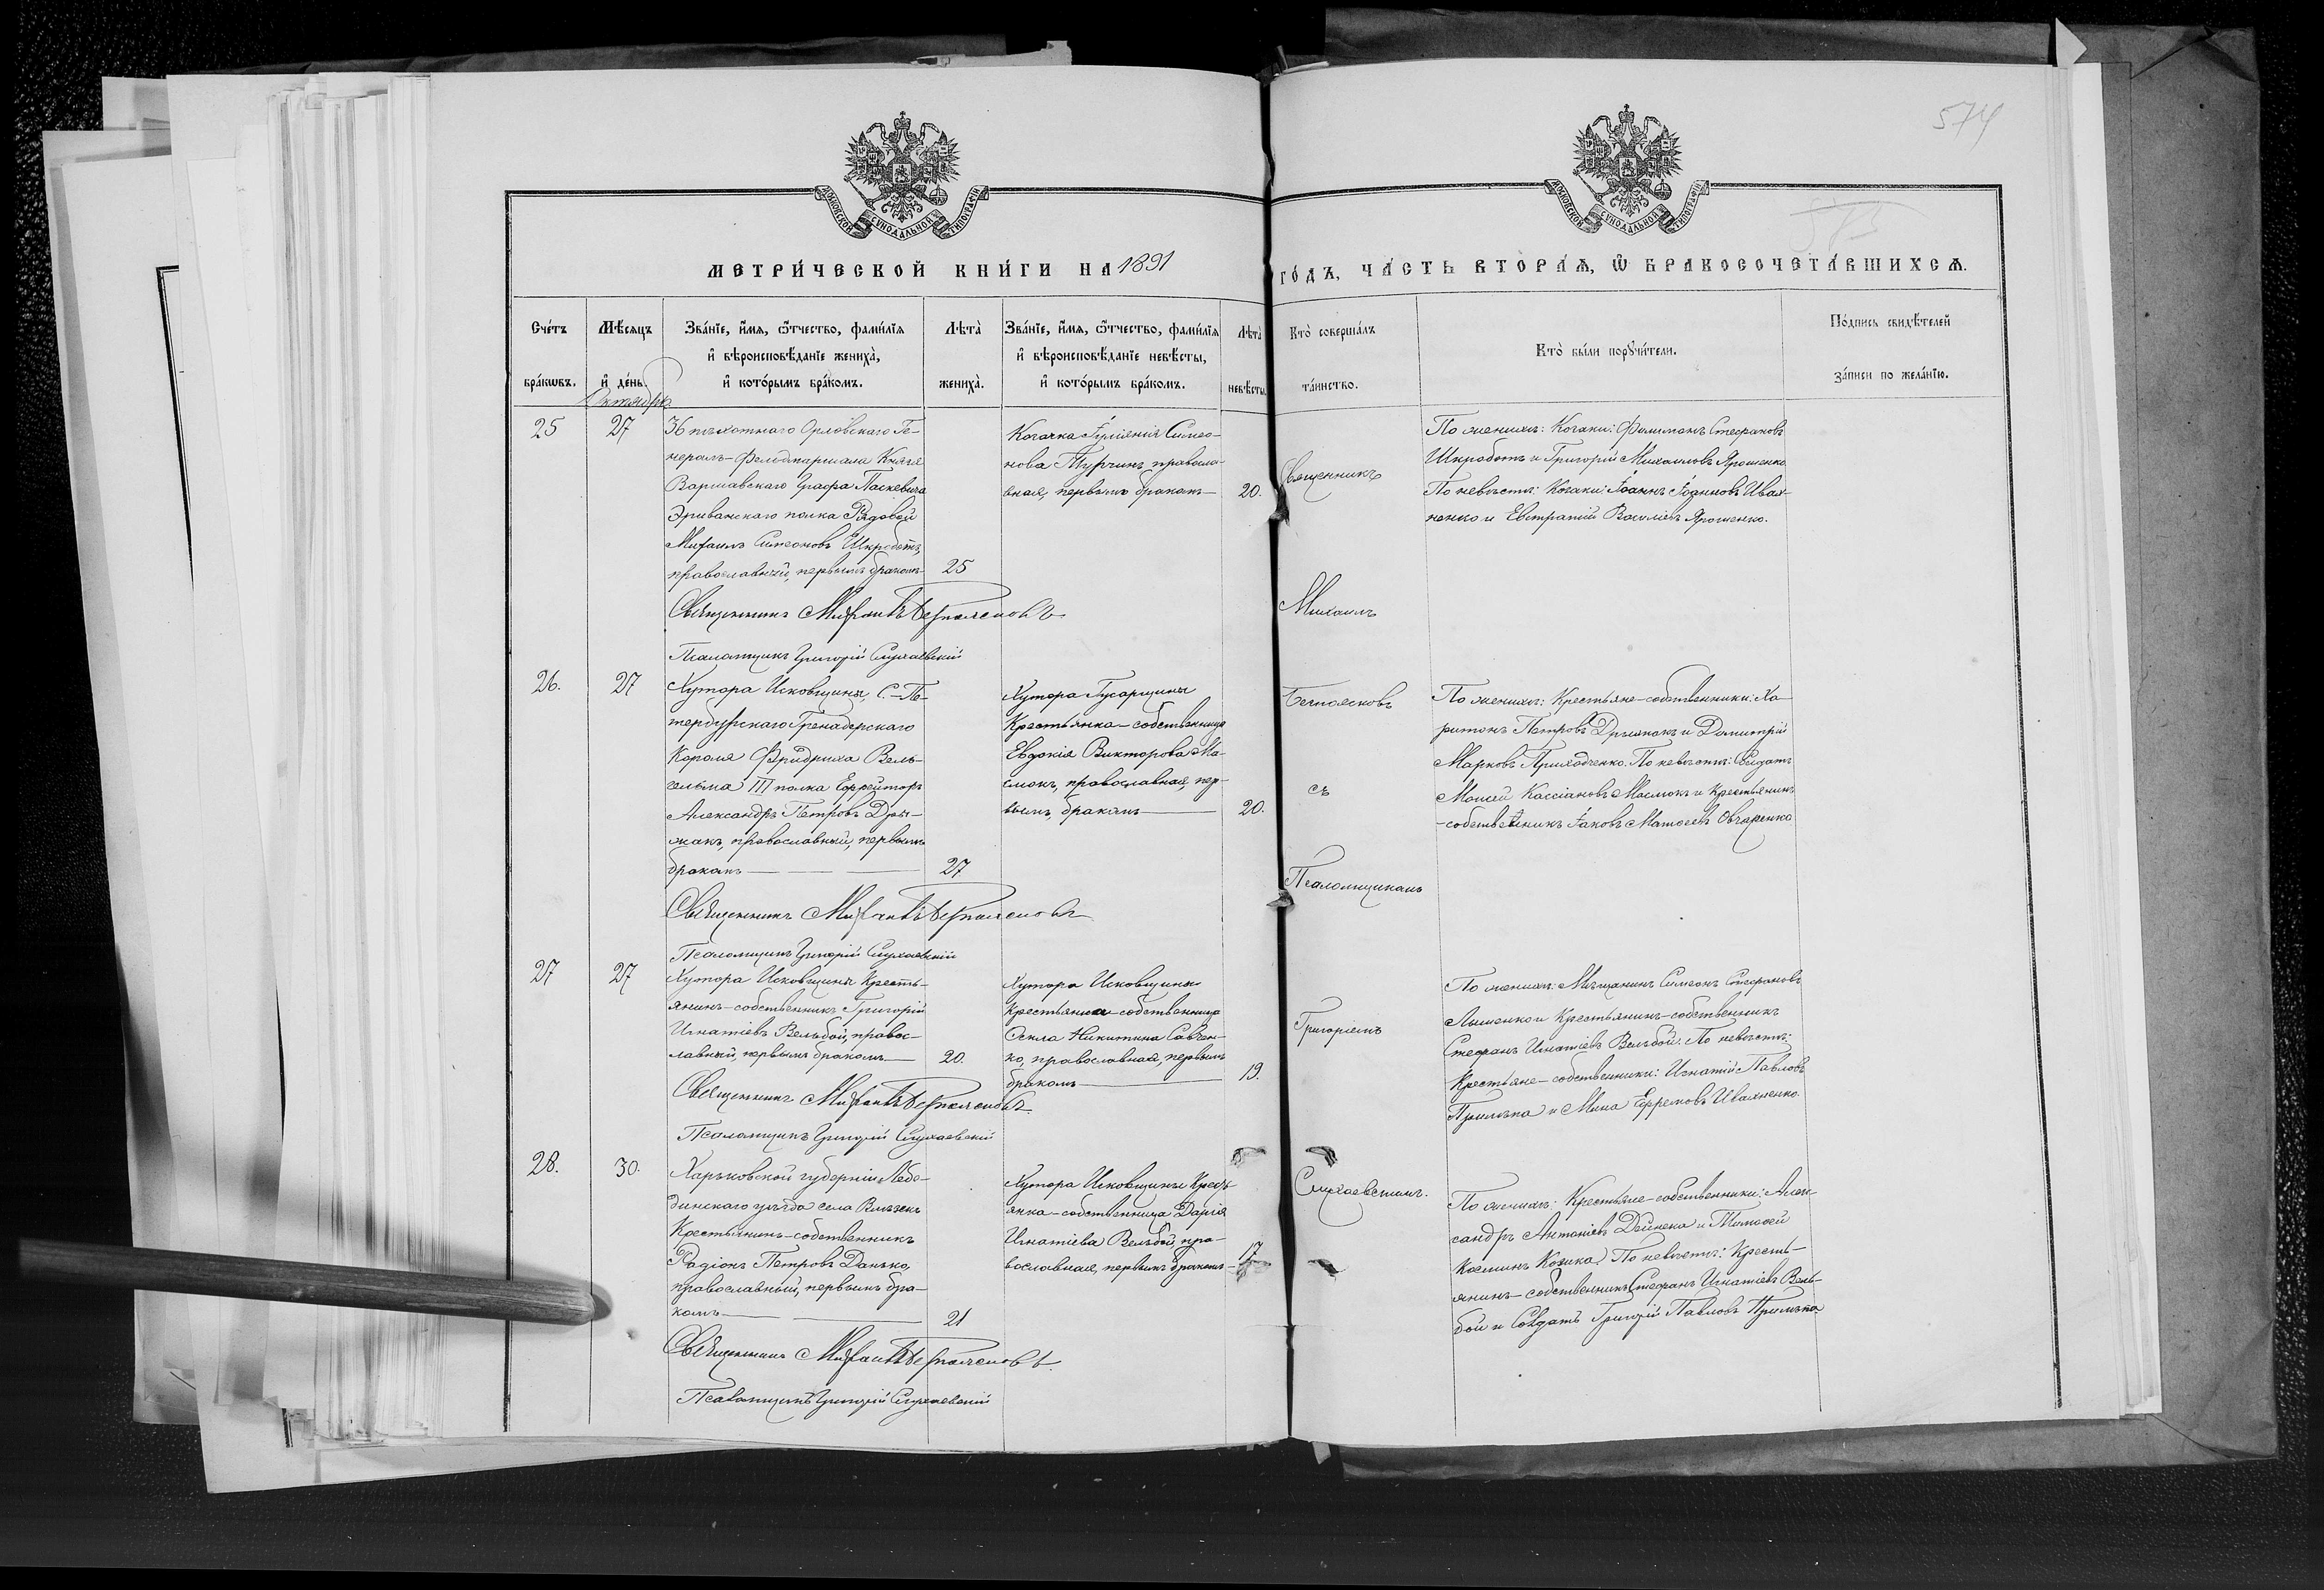 574
МОСКОВСКОЙ СѴНОДАЛЬНОЙ ТИПОГРАФІИ
МОСКОВСКОЙ СѴНОДАЛЬНОЙ ТИПОГРАФІИ
МЕТРИ́ЧЕСКОЙ КНИ́ГИ НА 1891
ГО́ДЪ, ЧА́СТЬ ВТОРА́Ѧ, Ѽ БРАКОСОЧЕТА́ВШИХСѦ.
Сче́тъ бра́кѡвъ.
Мѣ́сяцъ и҆ де́нь.
Октября
Зва́нїе, и҆́мѧ, ѻ҆́тчество, фами́лїѧ
и҆ вѣроисповѣ́данїе жениха̀,
и҆ кото́рымъ бра́комъ.
Лѣта̀ жениха̀.
Зва́нїе, и҆́мѧ, ѻ҆́тчество, фами́лїѧ
и҆ вѣроисповѣ́данїе невѣ́сты,
и҆ кото́рымъ бра́комъ.
Лѣта̀ невѣ́сты.
Кто̀ соверша́лъ
та́инство.
Кто̀ бы́ли порꙋчи́тели.
По́дпись свидѣ́телей
за́писи по жела́нїю.
25
27
36 пѣхотнаго Орловскаго Ге-
нералъ-Фельдмаршала Князя
Варшавскаго Графа Паскевича
Эриванскаго полка Рядовой
Михаилъ Симеоновъ Шкроботъ,
православный, первымъ бракомъ
25
Козачка Іуліанія Симео-
нова Турчинъ, правосла-
вная, первымъ бракомъ
20.
Священникъ
Михаилъ
Безпоясковъ
съ
Псаломщикомъ
Григоріемъ
Слухаевскимъ.
По женихѣ: Козаки: Филимонъ Стефановъ
Шкроботъ и Григорій Михаиловъ Ярошенко.
По невѣстѣ: Козаки: Іоаннъ Іоанновъ Ивах-
ненко и Евстратій Василіевъ Ярошенко.
Священникъ Михаилъ Безпоясковъ
Псаломщикъ Григорій Слухаевскій
26.
27
Хутора Исковщины, С.-Пе-
тербургскаго Гренадерскаго
Короля Фридриха Виль-
гельма III полка Ефрейторъ
Александръ Петровъ Дры-
жакъ, православный, первымъ
бракомъ
27
Хутора Гусарщины
Крестьянка-собственница
Евдокія Викторова Ма-
слюкъ, православная, пер-
вымъ бракомъ
20.
По женихѣ: Крестьяне-собственники: Ха-
ритонъ Петровъ Дрыжакъ и Димитрій
Марковъ Приходченко. По невѣстѣ: Солдатъ
Моисей Кассіановъ Маслюкъ и крестьянинъ
-собственникъ Іаковъ Матѳеевъ Овчаренко
Священникъ Михаилъ Безпоясковъ
Псаломщикъ Григорій Слухаевскій
27
27
Хутора Исковщины Кресть-
янинъ-собственникъ Григорій
Игнатіевъ Вельбой, правос-
лавный, первымъ бракомъ
20.
Хутора Исковщины
Крестьянка-собственница
Ѳекла Никитина Савчен-
ко, православная, первымъ
бракомъ
19.
По женихѣ: Мѣщанинъ Симеонъ Стефановъ
Лышенко и Крестьянинъ-собственникъ
Стефанъ Игнатіевъ Вельбой. По невѣстѣ:
Крестьяне-собственники: Игнатій Павловъ
Прилѣпа и Мина Ефремовъ Ивахненко.
Священникъ Михаилъ Безпоясковъ
Псаломщикъ Григорій Слухаевскій
28.
30.
Харьковской губерніи, Лебе-
динскаго уѣзда села
Крестьянинъ-собственникъ
Радіонъ Петровъ Данько,
православный, первымъ бра-
комъ
21
Хутора Исковщины Крест-
янка-собственница Дарія
Игнатіева Вельбой, пра-
вославная, первымъ бракомъ
17
По женихѣ: Крестьяне-собственники: Алек-
сандръ Антоніевъ Дейнека и Тимоѳей
Косминъ Козика. По невѣстѣ: Кресть-
янинъ-собственникъ Стефанъ Игнатіевъ Вель-
бой и Солдатъ Григорій Павловъ Прилѣпа
Священникъ Михаилъ Безпоясковъ.
Псаломщикъ Григорій Слухаевскій